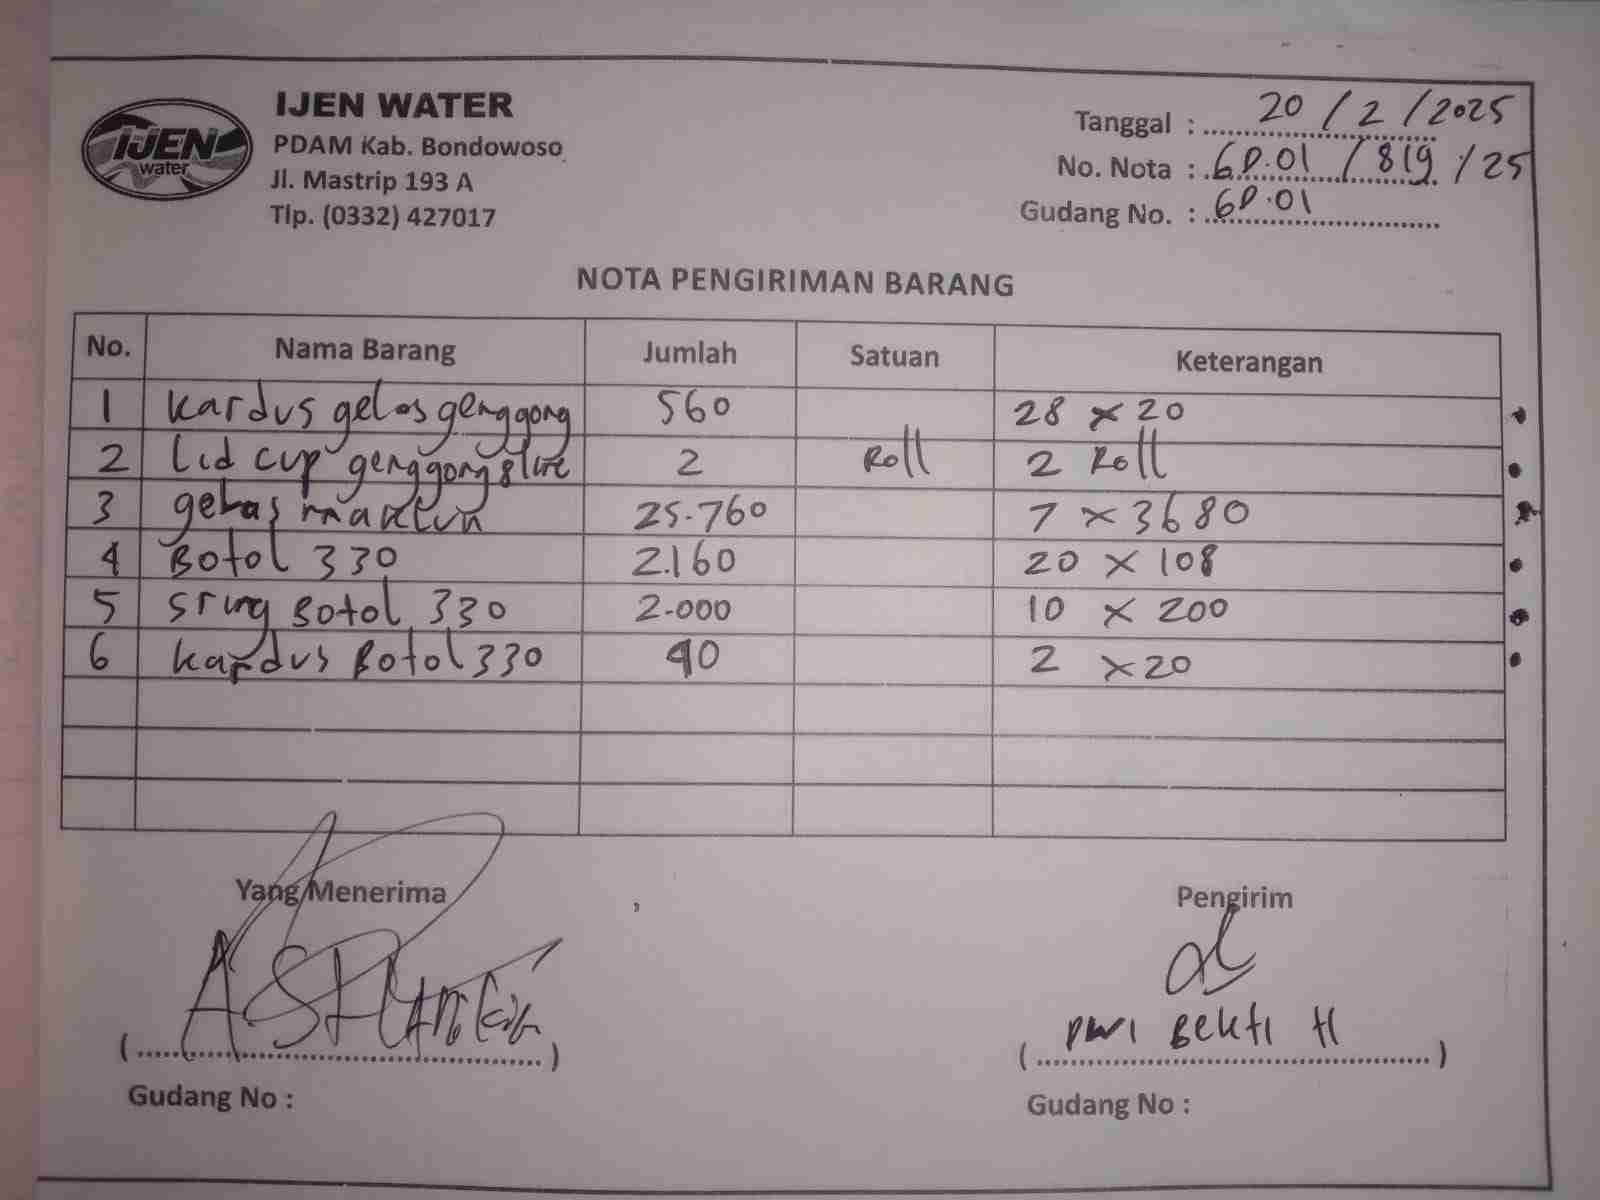 IJEN WATER
PDAM Kab. Bondowoso
Jl. Mastrip 193 A
Tlp. (0332) 427017
IJEN
water
Tanggal : 20 / 2 / 2025
No. Nota : GD.01 / 819 / 25
Gudang No. : GD.01
NOTA PENGIRIMAN BARANG
No. Nama Barang Jumlah Satuan Keterangan
1 kardus gelas genggong 560 28 x 20
2 Lid cup genggong 2 Roll 2 Roll
3 gelas 25.760 7 x 3680
4 Botol 330 2.160 20 x 108
5 Botol 330 2.000 10 x 200
6 kardus Botol 330 40 2 x 20
Yang Menerima Pengirim
Bekti H
( ) ( )
Gudang No : Gudang No :